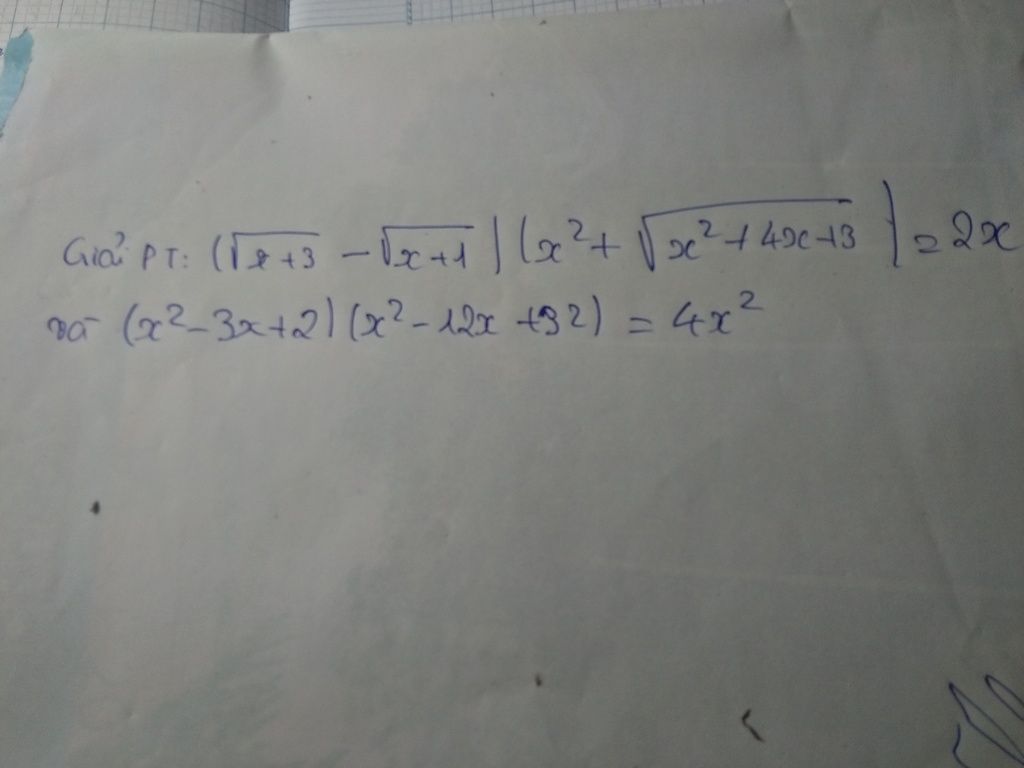 Giải PT: (√x+3 − √x+1)(x² + √x²+4x+3) = 2x
và (x² − 3x + 2)(x² − 12x + 32) = 4x²